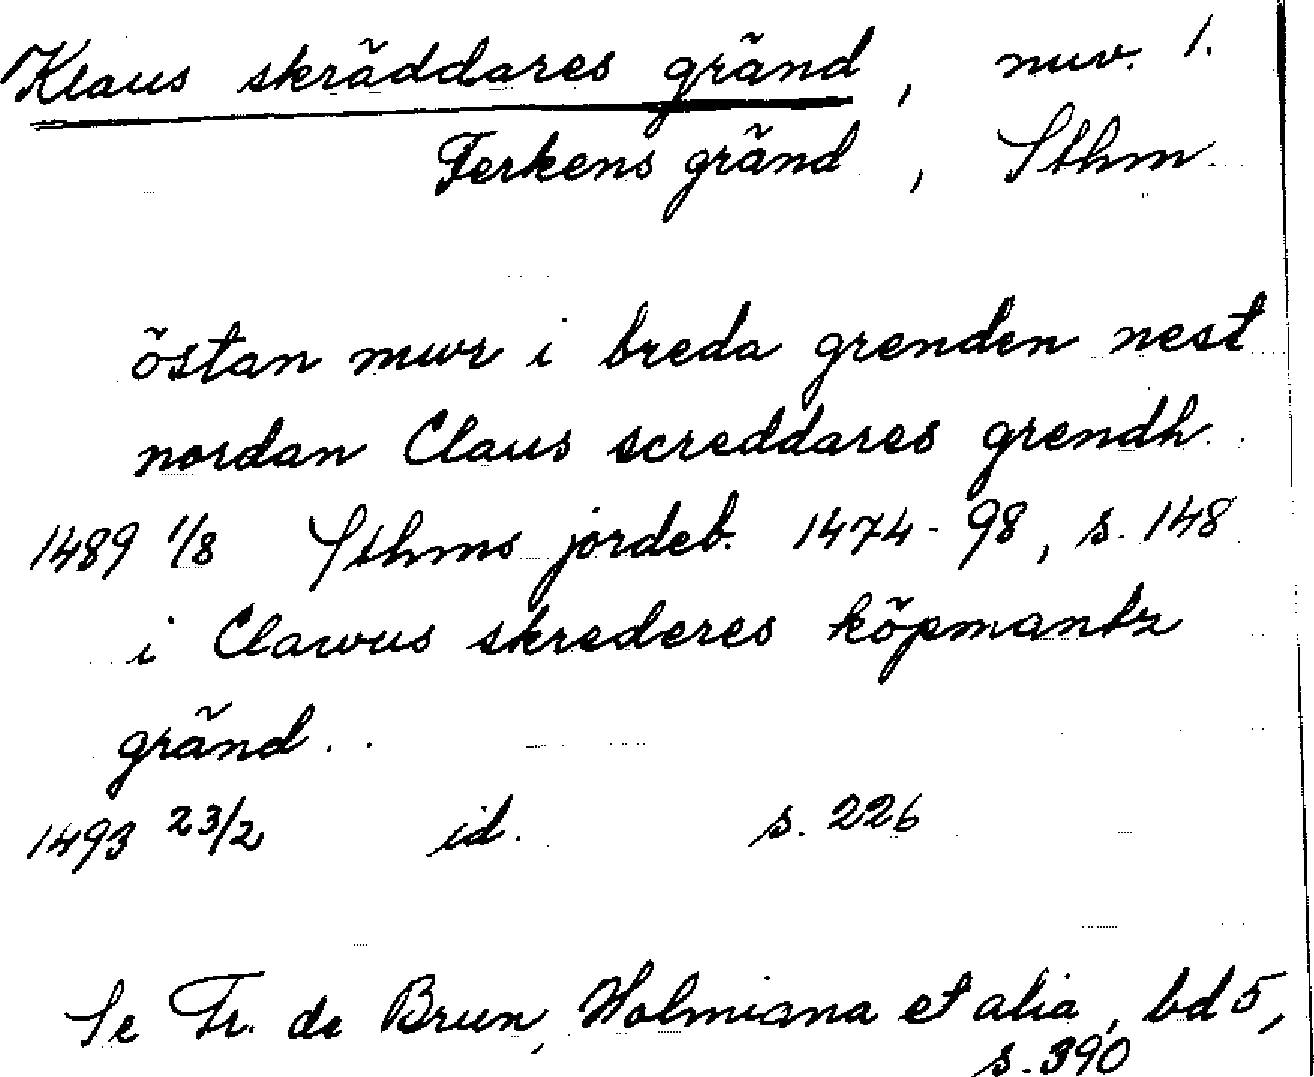 Klaus skräddares gränd, nuv. 1.
Ferkens gränd, Sthm.
östan mwr i breda grenden nest
nordan Claus screddares grendh.
1489 1/8 Sthms jordeb. 1474-98, s. 148
i Clawus skrederes köpmantz
gränd.
1493 23/2 id. s. 226
Se Fr. de Brun, Holmiana et alia, bd 5,
s. 390